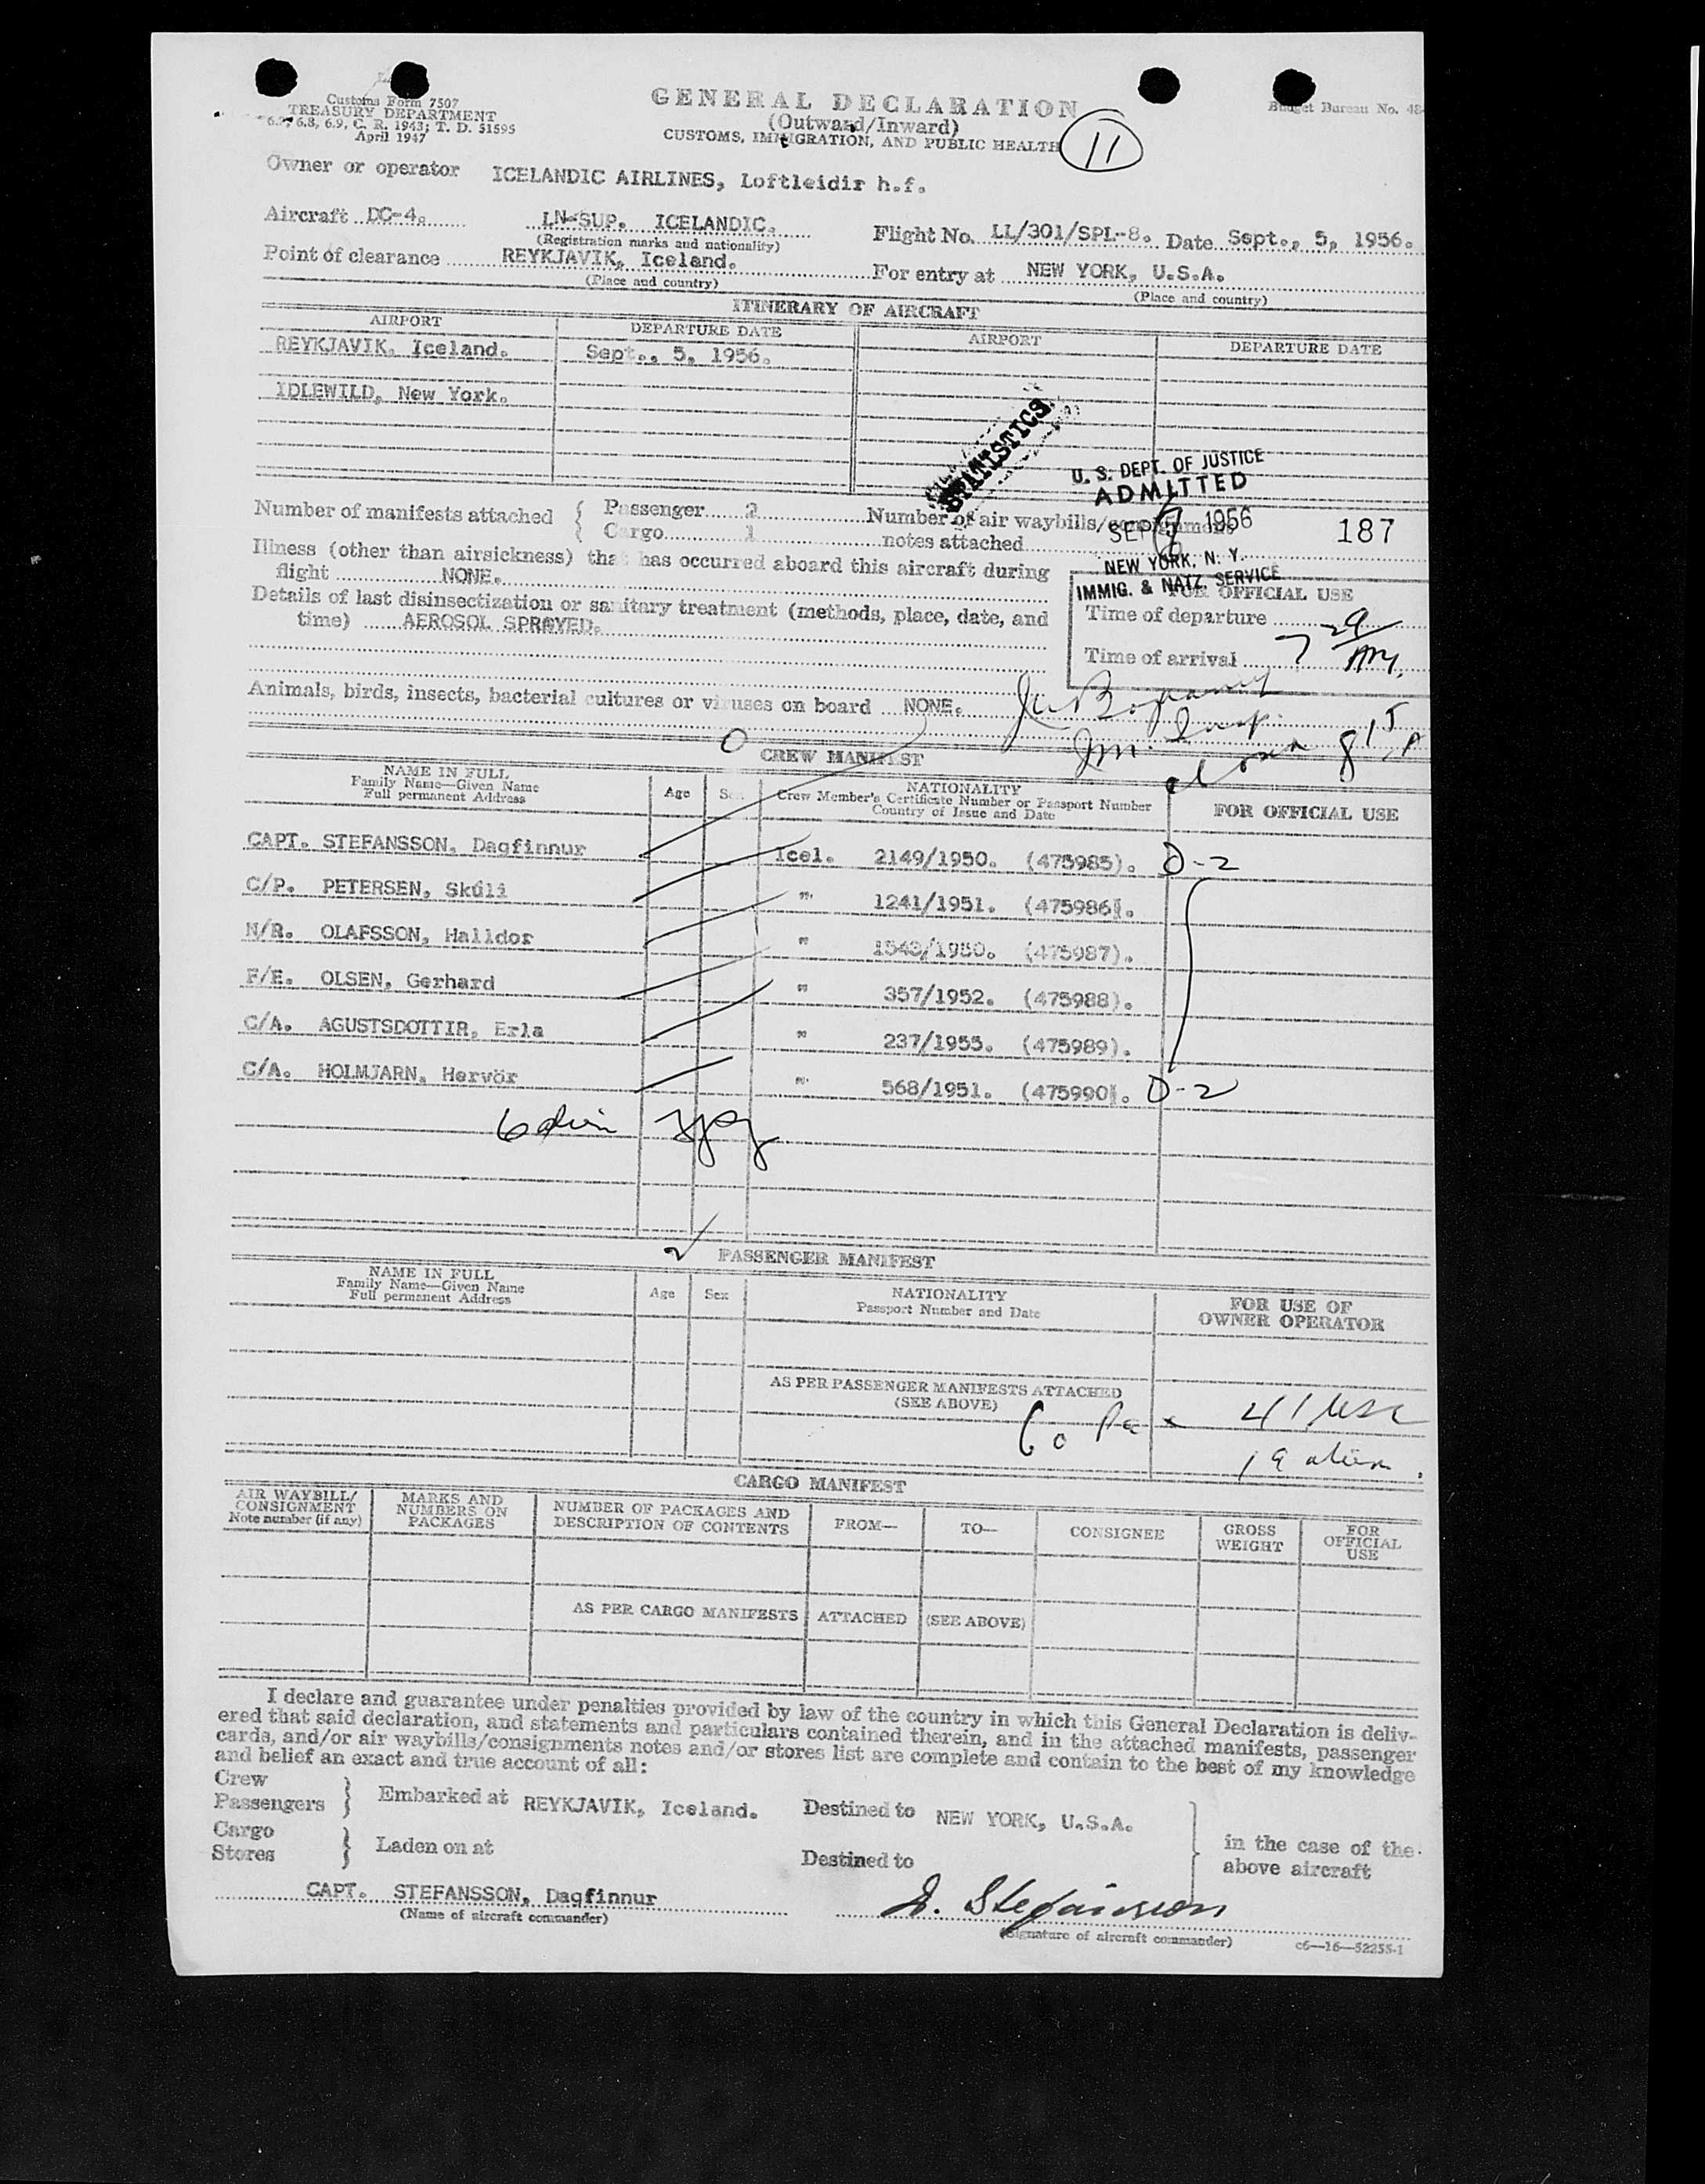 Customs Form 7507
TREASURY DEPARTMENT
6.7, 6.8, 6.9, C. R. 1943; T. D. 51595
April 1947
GENERAL DECLARATION
(Outward/Inward)
CUSTOMS, IMMIGRATION, AND PUBLIC HEALTH
11
Budget Bureau No. 48
Owner or operator ICELANDIC AIRLINES, Loftleidir h.f.
Aircraft DC-4. LN-SUP. ICELANDIC. Flight No. LL/301/SPL-8. Date Sept., 5, 1956.
(Registration marks and nationality)
Point of clearance REYKJAVIK, Iceland. For entry at NEW YORK, U.S.A.
(Place and country) (Place and country)
ITINERARY OF AIRCRAFT
AIRPORT DEPARTURE DATE AIRPORT DEPARTURE DATE
REYKJAVIK, Iceland. Sept., 5, 1956.
IDLEWILD, New York.
STATISTICS
U. S. DEPT. OF JUSTICE
ADMITTED
SEP 1956
187
NEW YORK, N. Y.
IMMIG. & NATZ. SERVICE
Number of manifests attached { Passenger 2 Number of air waybills/
{ Cargo 1 notes attached
Illness (other than airsickness) that has occurred aboard this aircraft during
flight NONE.
Details of last disinsectization or sanitary treatment (methods, place, date, and
time) AEROSOL SPRAYED.
FOR OFFICIAL USE
Time of departure
Time of arrival 7 29 AM
Animals, birds, insects, bacterial cultures or viruses on board NONE.
CREW MANIFEST
NAME IN FULL
Family Name—Given Name
Full permanent Address
Age Sex
NATIONALITY
Crew Member's Certificate Number or Passport Number
Country of Issue and Date
FOR OFFICIAL USE
CAPT. STEFANSSON, Dagfinnur Icel. 2149/1950. (475985). D-2
C/P. PETERSEN, Skúli " 1241/1951. (475986).
N/R. OLAFSSON, Halldor " 1543/1950. (475987).
F/E. OLSEN, Gerhard " 357/1952. (475988).
C/A. AGUSTSDOTTIR, Erla " 237/1955. (475989).
C/A. HOLMJARN, Hervör " 568/1951. (475990). D-2
6 alien
PASSENGER MANIFEST
NAME IN FULL
Family Name—Given Name
Full permanent Address
Age Sex
NATIONALITY
Passport Number and Date
FOR USE OF
OWNER OPERATOR
AS PER PASSENGER MANIFESTS ATTACHED
(SEE ABOVE)
60 Pax 41 USC
19 alien
CARGO MANIFEST
AIR WAYBILL/
CONSIGNMENT
Note number (if any)
MARKS AND
NUMBERS ON
PACKAGES
NUMBER OF PACKAGES AND
DESCRIPTION OF CONTENTS
FROM—
TO—
CONSIGNEE
GROSS
WEIGHT
FOR
OFFICIAL
USE
AS PER CARGO MANIFESTS ATTACHED (SEE ABOVE)
I declare and guarantee under penalties provided by law of the country in which this General Declaration is deliv-
ered that said declaration, and statements and particulars contained therein, and in the attached manifests, passenger
cards, and/or air waybills/consignments notes and/or stores list are complete and contain to the best of my knowledge
and belief an exact and true account of all:
Crew
Passengers } Embarked at REYKJAVIK, Iceland. Destined to NEW YORK, U.S.A.
Cargo
Stores } Laden on at Destined to
in the case of the
above aircraft
CAPT. STEFANSSON, Dagfinnur D. Stefánsson
(Name of aircraft commander) (Signature of aircraft commander) c6—16—52255-1